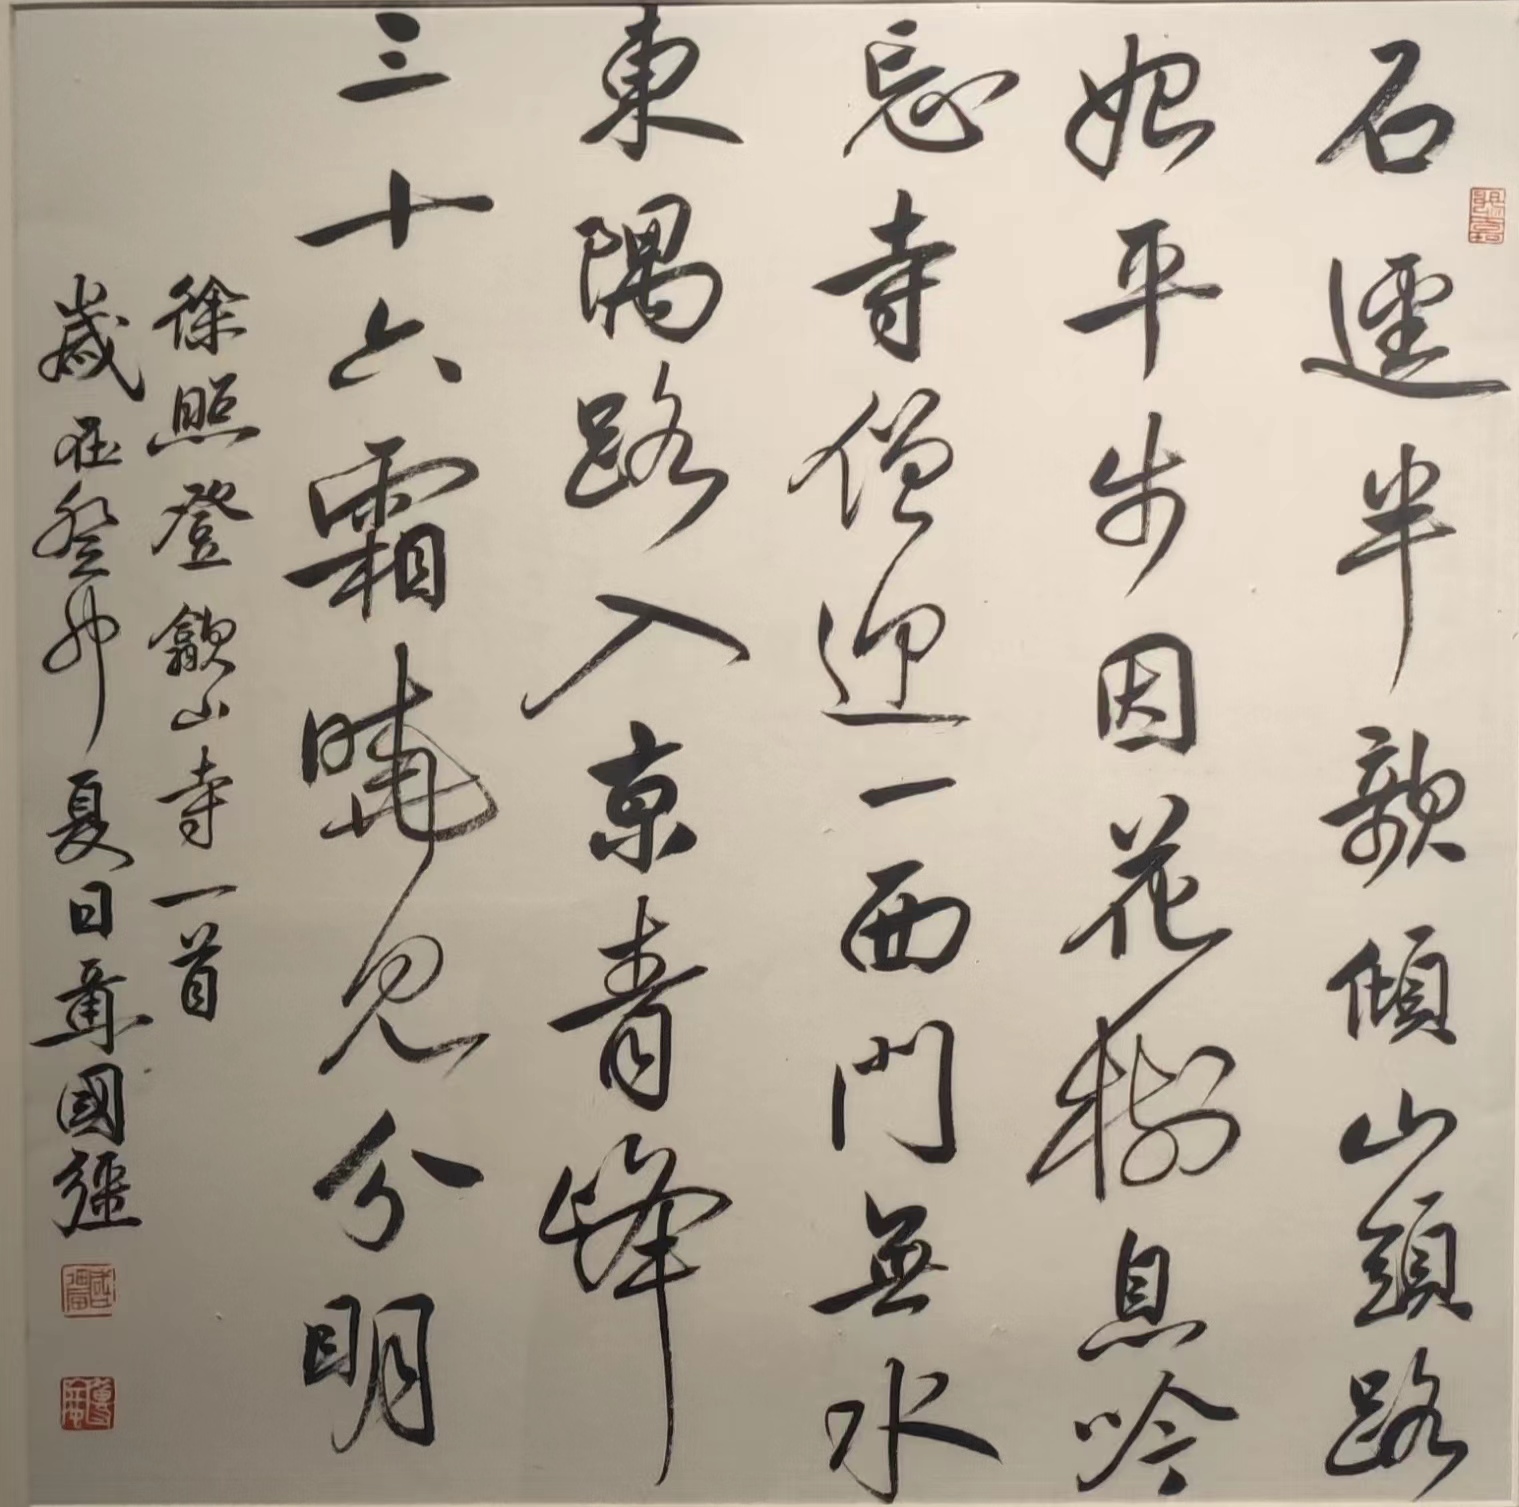 石逕半欹傾山頭路
始平步因花樹息吟
忘寺僧迎一西門無水
東隅路入京青峰
三十六霜曉見分明
徐照登歙山寺一首
歲在癸卯夏日董國彊